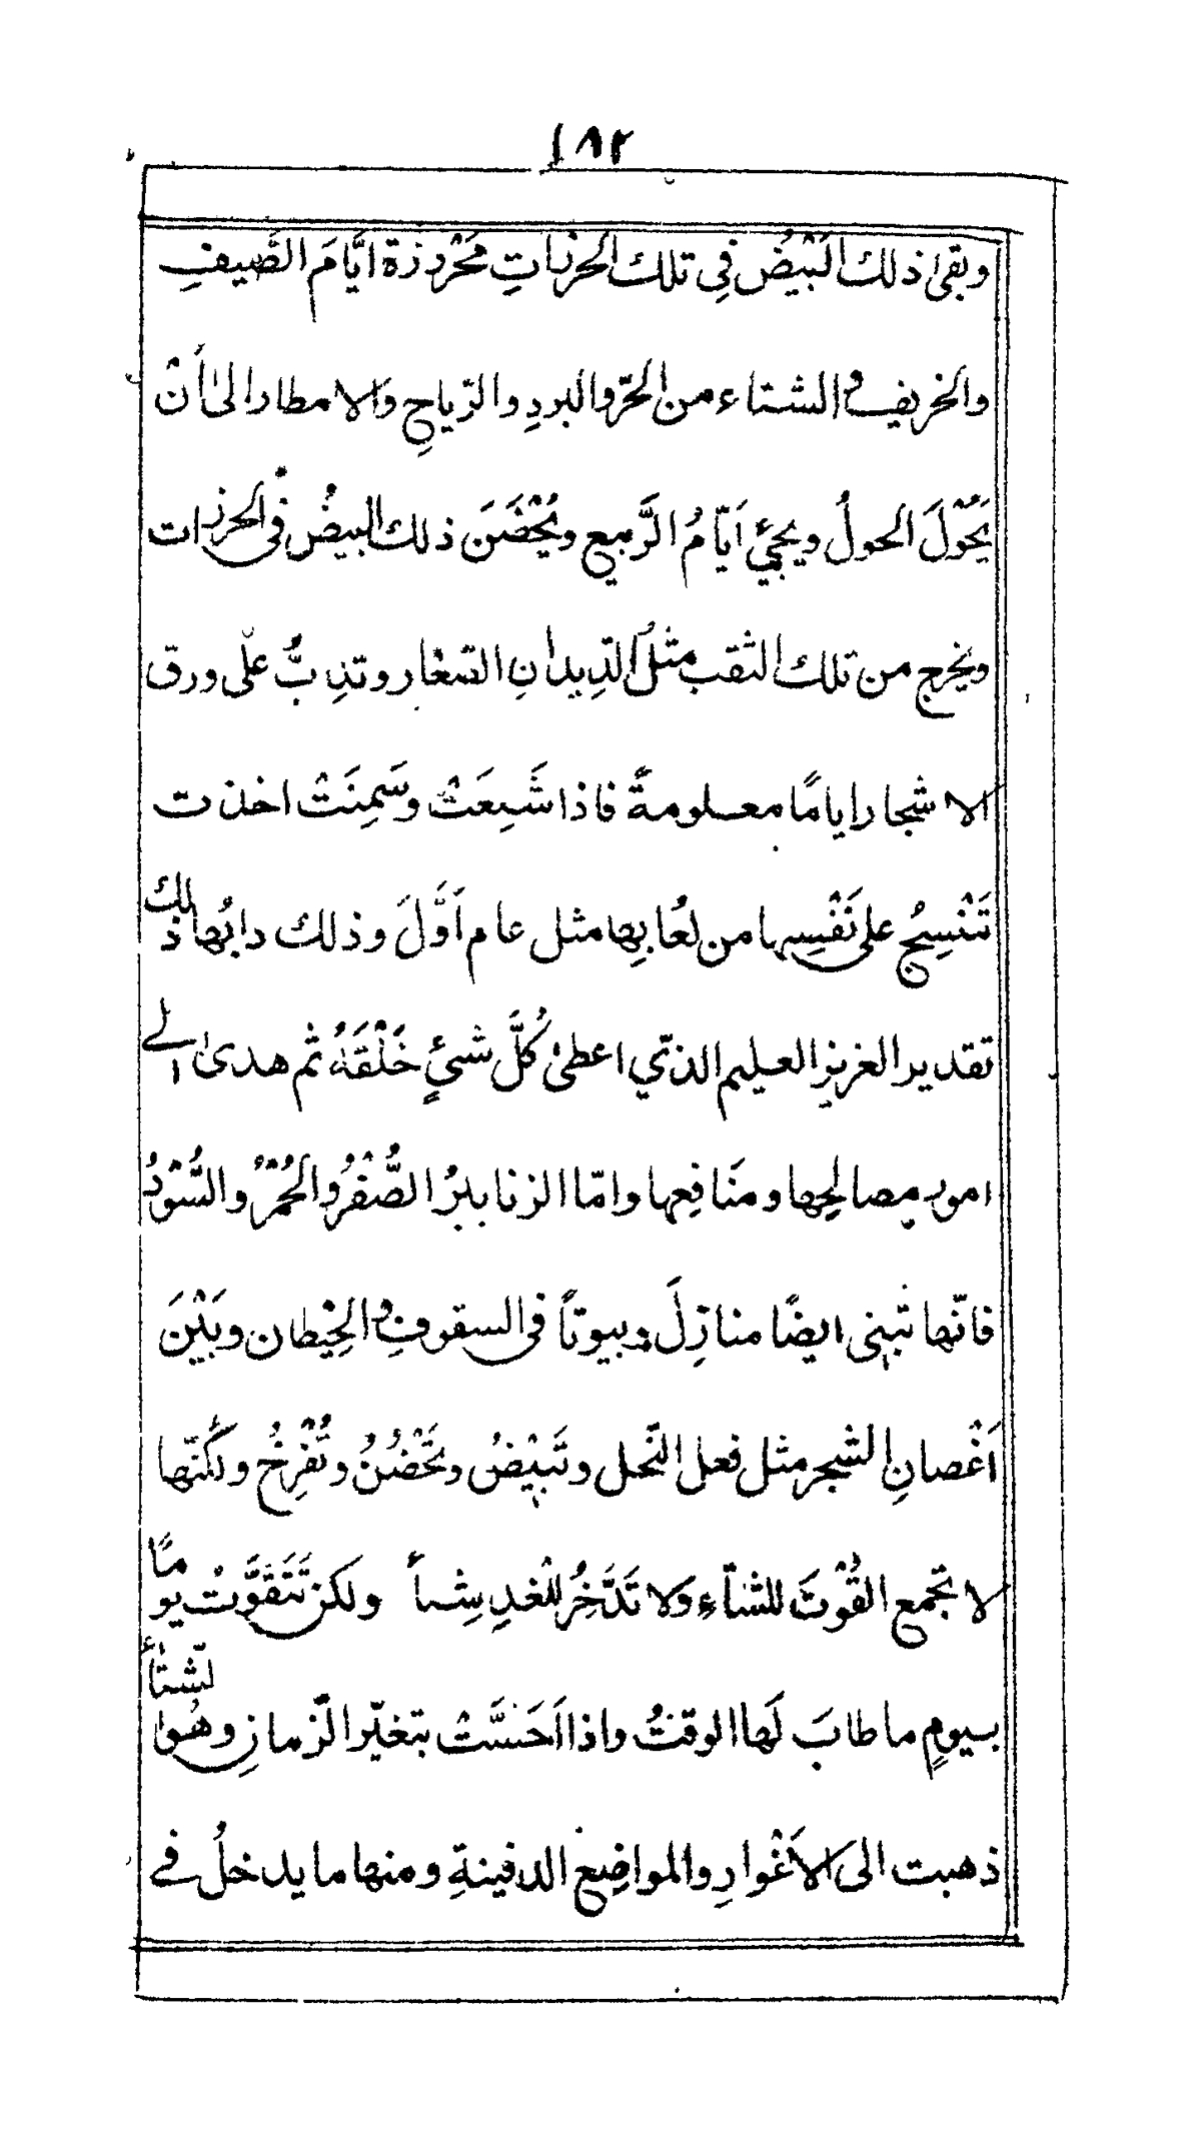 ١٨٢
وبقى ذلك البَيْضُ فِي تلك الحرزاتِ مَحْرُوزة ايَّامَ الصَّيفِ
والخريف و الشتاء من الحرّ والبردِ والرّياحِ والامطار الىٰ أنْ
يَحُوْلَ الحولُ ويجئ اَيّامُ الرَّبيع ويُحْضَنَ ذلك البيضُ في الحرزات
ويخرج من تلك الثقب مثلُ الدِّيدانِ الصّغار وتدِبُّ علٰى ورق
الاشجار اياماً معلومةً فاذا شَبِعَتْ وسَمِنَتْ اخذت
تَنْسِجُ على نَفْسِها من لُعابِها مثل عام اَوَّلَ وذلك دابُها ذلك
تقدير العزيزِ العليم الذّي اعطىٰ كُلَّ شئٍ خَلْقَهُ ثم هدىٰ الے
امور مصالحِها ومَنَافِعِها وامّا الزنابيرُ الصُّفْرُ والحُمْرُ والسُّوْدُ
فانّها تبنى ايضًا منازِلَ وبيوتاً فى السقوفِ والحِيْطان وبَيْنَ
اَغْصانِ الشجر مثل فعل النّحل وتَبِيْضُ وتَحْضُنُ وتُفْرِخُ ولكنّها
لا تجمع القُوْتَ للشتآءِ ولا تَدَّخِرُ للغدِ شيأ ولكن تَتَقَوَّتُ يومًا
بيومٍ ما طابَ لَها الوقتُ واذا اَحَسَّتْ بتغيّر الزّمانِ وهُوا لشتاء
ذهبت الى الاَغْوارِ والمواضِعِ الدفينةِ ومنها ما يدخلُ فے